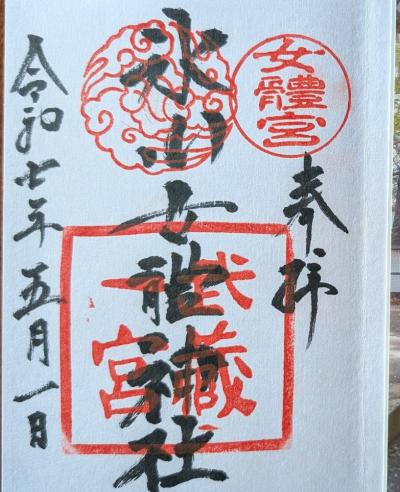 女體宮
奉拝
氷川女體神社
武藏
一宮
令和七年五月一日